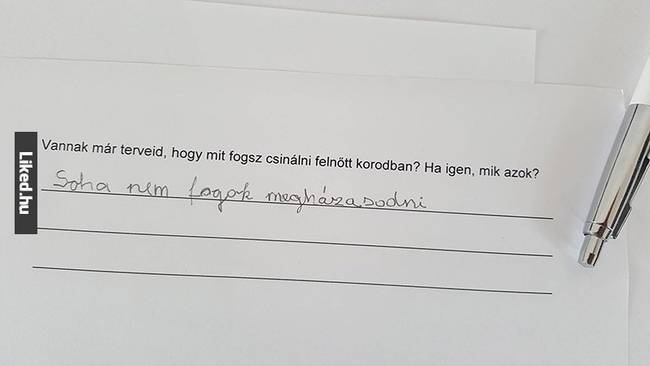 Vannak már terveid, hogy mit fogsz csinálni felnőtt korodban? Ha igen, mik azok?
Soha nem fogok megházasodni
Liked.hu